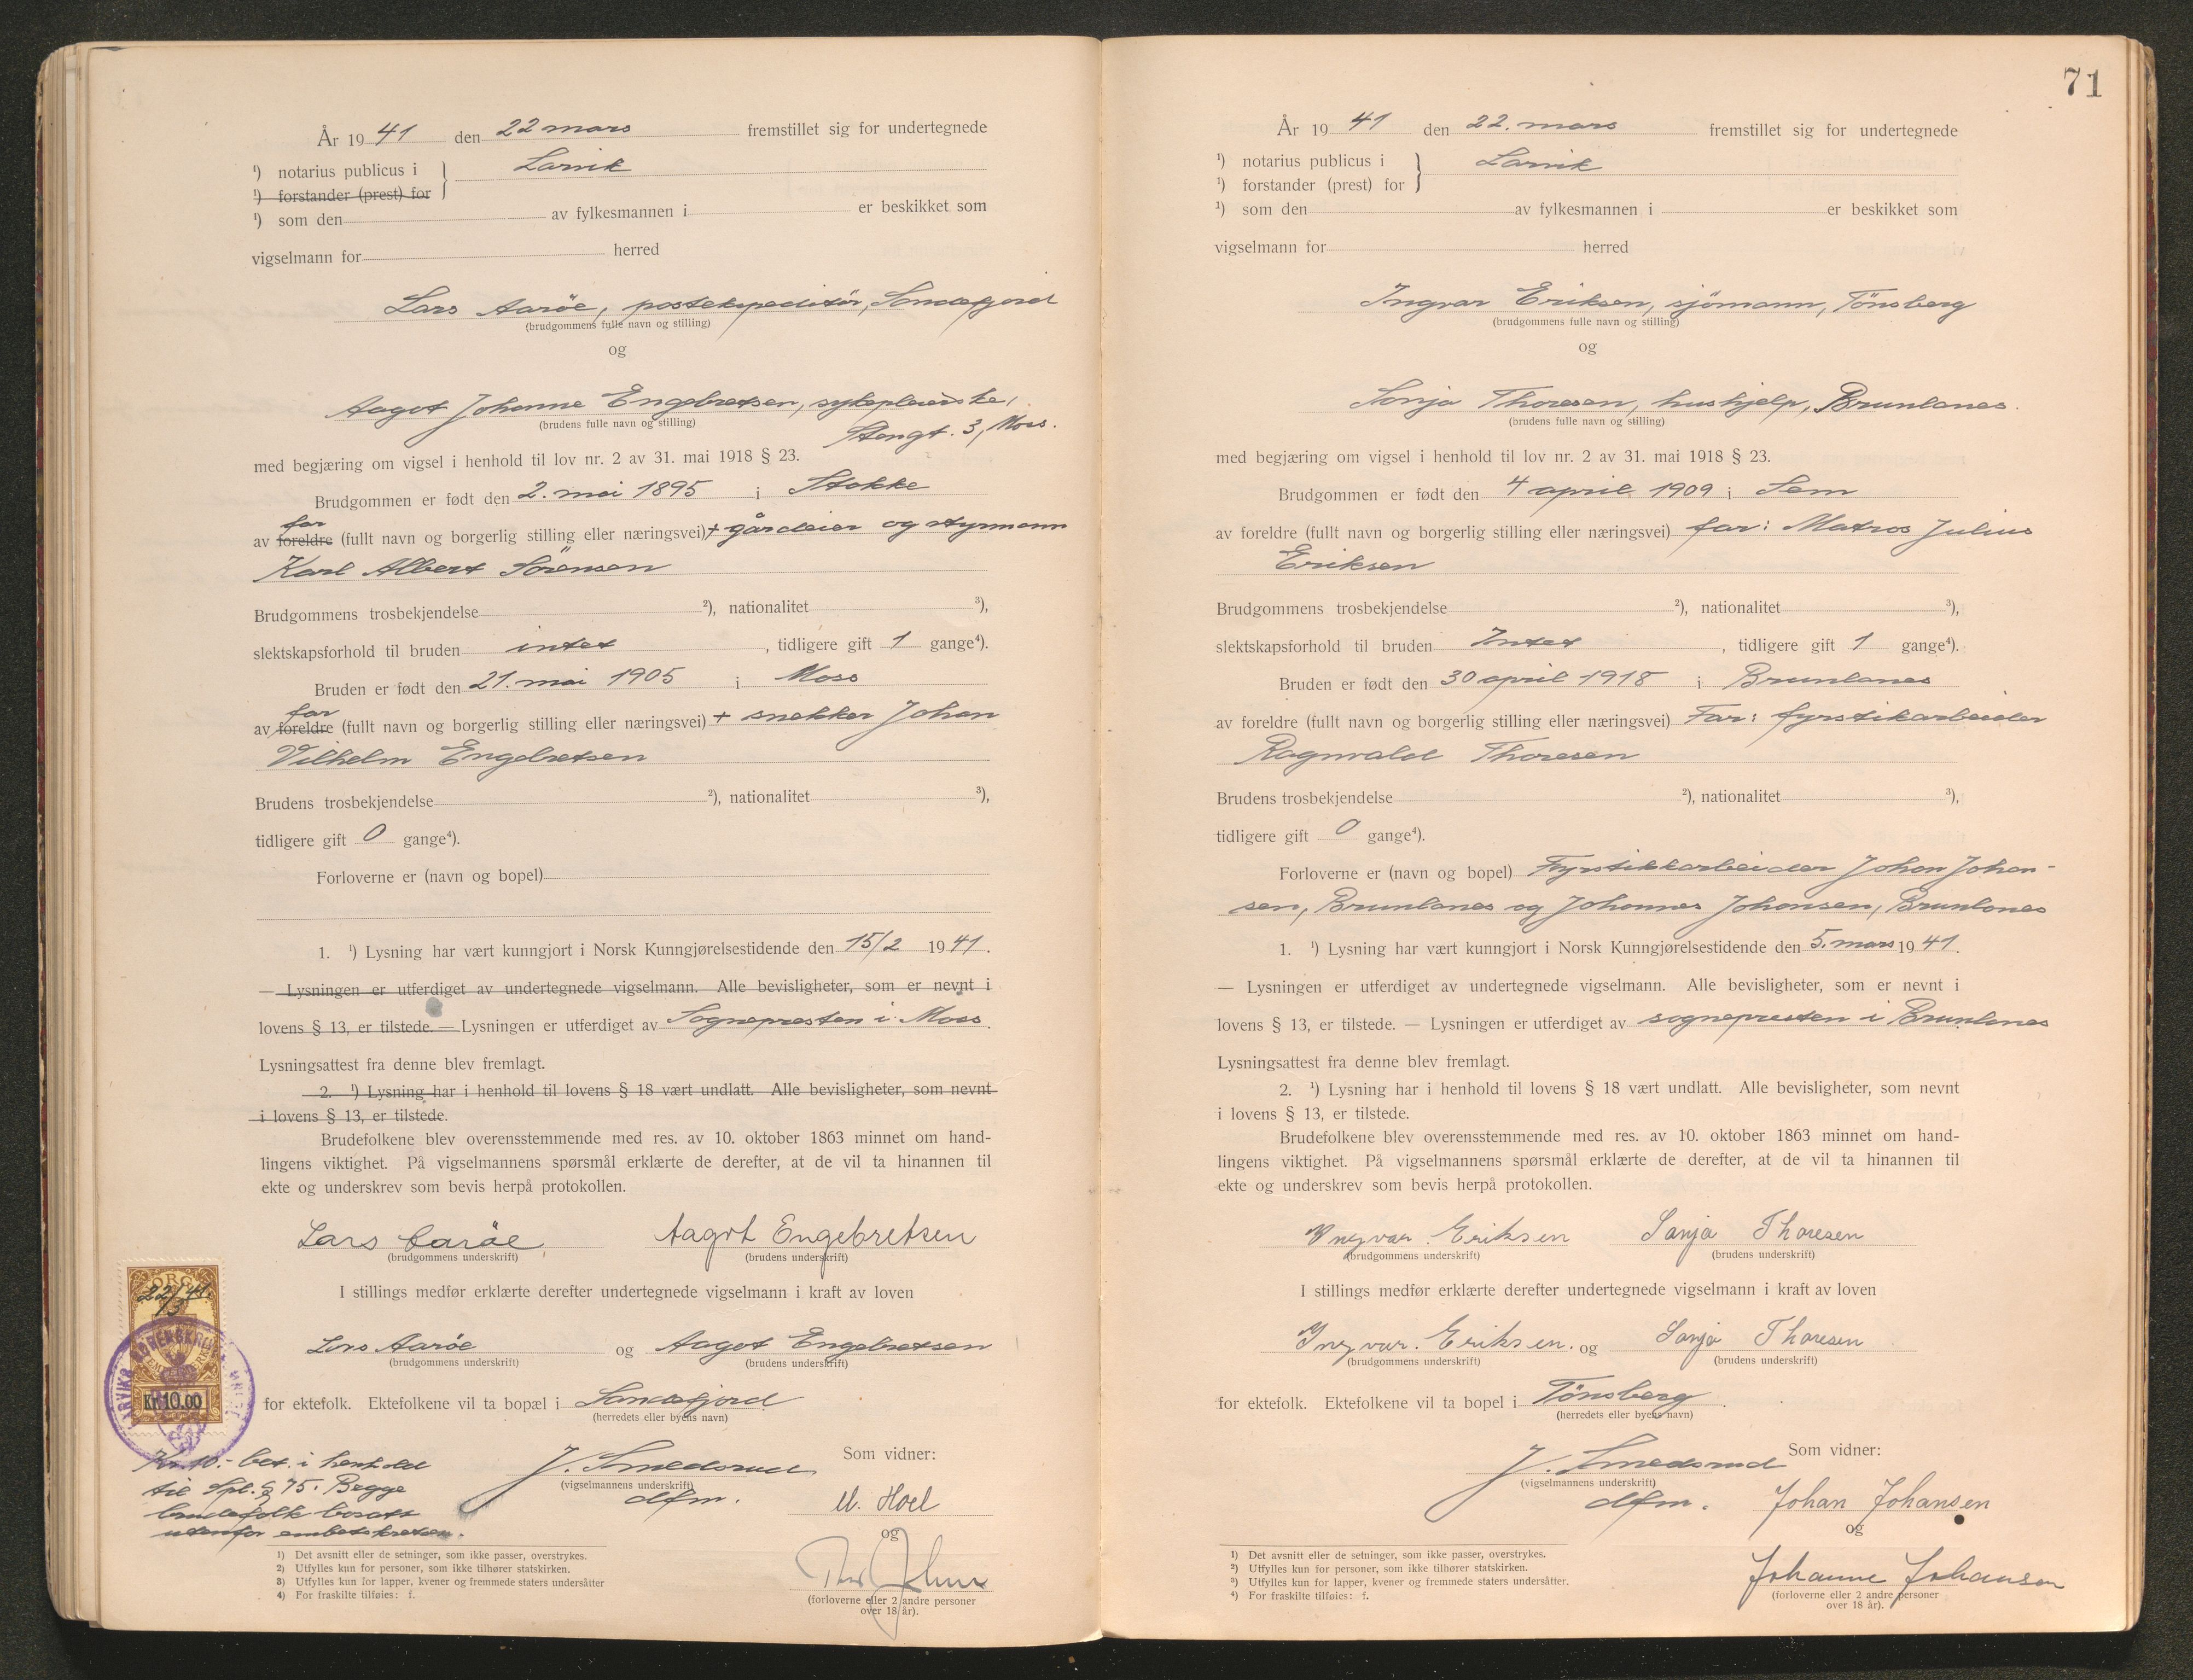 År 19 41 den 22 mars fremstillet sig for undertegnede
¹) notarius publicus i } Larvik
¹) forstander (prest) for
¹) som den av fylkesmannen i er beskikket som
vigselmann for herred
Lars Aarøe, postekspeditør, Sandefjord
(brudgommens fulle navn og stilling)
og
Aagot Johanne Engebretsen, sykepleierske,
(brudens fulle navn og stilling)
Stengt. 3, Moss.
med begjæring om vigsel i henhold til lov nr. 2 av 31. mai 1918 § 23.
Brudgommen er født den 2. mai 1895 i Stokke
far
av foreldre (fullt navn og borgerlig stilling eller næringsvei) + gårdeier og styrmann
Karl Albert Sörensen
Brudgommens trosbekjendelse ²), nationalitet ³),
slektskapsforhold til bruden intet , tidligere gift 1 gange⁴).
Bruden er født den 21. mai 1905 i Moss
far
av foreldre (fullt navn og borgerlig stilling eller næringsvei) + snekker Johan
Vilhelm Engebretsen
Brudens trosbekjendelse ²), nationalitet ³),
tidligere gift 0 gange⁴).
Forloverne er (navn og bopel)
1. ¹) Lysning har vært kunngjort i Norsk Kunngjørelsestidende den 15/2 1941.
— Lysningen er utferdiget av undertegnede vigselmann. Alle bevisligheter, som er nevnt i
lovens § 13, er tilstede. — Lysningen er utferdiget av Sognepresten i Moss.
Lysningsattest fra denne blev fremlagt.
2. ¹) Lysning har i henhold til lovens § 18 vært undlatt. Alle bevisligheter, som nevnt
i lovens § 13, er tilstede.
Brudefolkene blev overensstemmende med res. av 10. oktober 1863 minnet om hand-
lingens viktighet. På vigselmannens spørsmål erklærte de derefter, at de vil ta hinannen til
ekte og underskrev som bevis herpå protokollen.
Lars Aarøe, Aagot Engebretsen
(brudgommens underskrift) (brudens underskrift)
I stillings medfør erklærte derefter undertegnede vigselmann i kraft av loven
Lars Aarøe og Aagot Engebretsen
(brudgommens underskrift) (brudens underskrift)
for ektefolk. Ektefolkene vil ta bopæl i Sandefjord
(herredets eller byens navn)
22/3 41.
KR 10.00
Kr. 10.- bet. i henhold
til Spl. § 75. Begge
brudefolk bosatt
utenfor embetskretsen.
J. Smedsrud
(vigselmannens underskrift)
dfm.
Som vidner:
M. Hoel
og
(forloverne eller 2 andre personer
over 18 år).
1) Det avsnitt eller de setninger, som ikke passer, overstrykes.
2) Utfylles kun for personer, som ikke tilhører statskirken.
3) Utfylles kun for lapper, kvener og fremmede staters undersåtter
4) For fraskilte tilføies: f.
71
År 19 41 den 22. mars fremstillet sig for undertegnede
¹) notarius publicus i } Larvik
¹) forstander (prest) for
¹) som den av fylkesmannen i er beskikket som
vigselmann for herred
Ingvar Eriksen, sjömann, Tönsberg
(brudgommens fulle navn og stilling)
og
Sonja Thoresen, hushjelp, Brunlanes.
(brudens fulle navn og stilling)
med begjæring om vigsel i henhold til lov nr. 2 av 31. mai 1918 § 23.
Brudgommen er født den 4 april 1909 i Sem
av foreldre (fullt navn og borgerlig stilling eller næringsvei) far: Matros Julius
Eriksen
Brudgommens trosbekjendelse ²), nationalitet ³),
slektskapsforhold til bruden Intet , tidligere gift 1 gange⁴).
Bruden er født den 30 april 1918 i Brunlanes
av foreldre (fullt navn og borgerlig stilling eller næringsvei) Far: fyrstikarbeider
Ragnvald Thoresen
Brudens trosbekjendelse ²), nationalitet ³),
tidligere gift 0 gange⁴).
Forloverne er (navn og bopel) Fyrstikkarbeider Johan Johan-
sen, Brunlanes og Johannes Johansen, Brunlanes
1. ¹) Lysning har vært kunngjort i Norsk Kunngjørelsestidende den 5. mars 1941.
— Lysningen er utferdiget av undertegnede vigselmann. Alle bevisligheter, som er nevnt i
lovens § 13, er tilstede. — Lysningen er utferdiget av sognepresten i Brunlanes
Lysningsattest fra denne blev fremlagt.
2. ¹) Lysning har i henhold til lovens § 18 vært undlatt. Alle bevisligheter, som nevnt
i lovens § 13, er tilstede.
Brudefolkene blev overensstemmende med res. av 10. oktober 1863 minnet om hand-
lingens viktighet. På vigselmannens spørsmål erklærte de derefter, at de vil ta hinannen til
ekte og underskrev som bevis herpå protokollen.
Ingvar Eriksen Sonja Thoresen
(brudgommens underskrift) (brudens underskrift)
I stillings medfør erklærte derefter undertegnede vigselmann i kraft av loven
Ingvar. Eriksen. og Sonja Thoresen
(brudgommens underskrift) (brudens underskrift)
for ektefolk. Ektefolkene vil ta bopel i Tönsberg.
(herredets eller byens navn)
J. Smedsrud
(vigselmannens underskrift)
dfm.
Som vidner:
Johan Johansen
og
Johanne Johansen
(forloverne eller 2 andre personer
over 18 år).
1) Det avsnitt eller de setninger, som ikke passer, overstrykes.
2) Utfylles kun for personer, som ikke tilhører statskirken.
3) Utfylles kun for lapper, kvener og fremmede staters undersåtter.
4) For fraskilte tilføies: f.